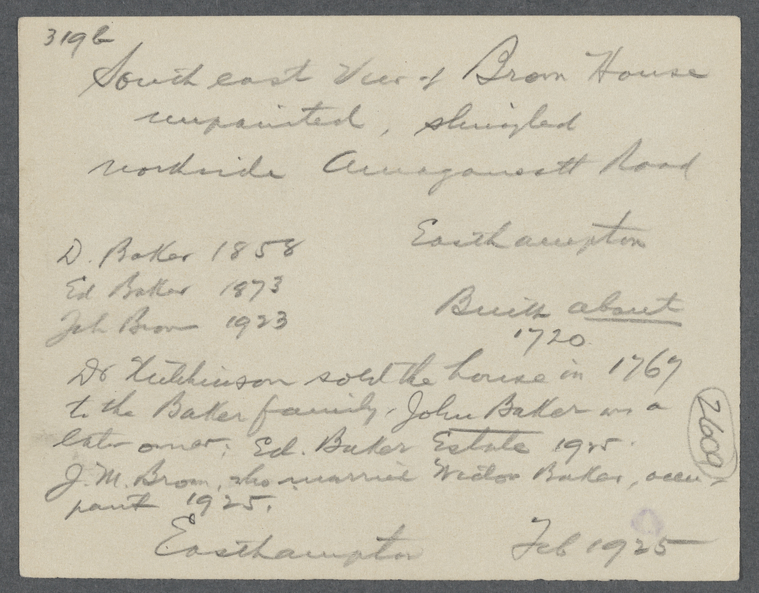 319b
South east View of Brown House
unpainted, shingled
northside Amagansett Road
Easthampton
D. Baker 1858
Ed Baker 1873
Jsh Brown 1923
Built about
1720
Dr Hutchinson sold the house in 1767
to the Baker family. John Baker was a
later owner; Ed. Baker Estate 1925.
J. M. Brown, who married Widow Baker, occu-
pant 1925.
2600
Easthampton Feb 1925